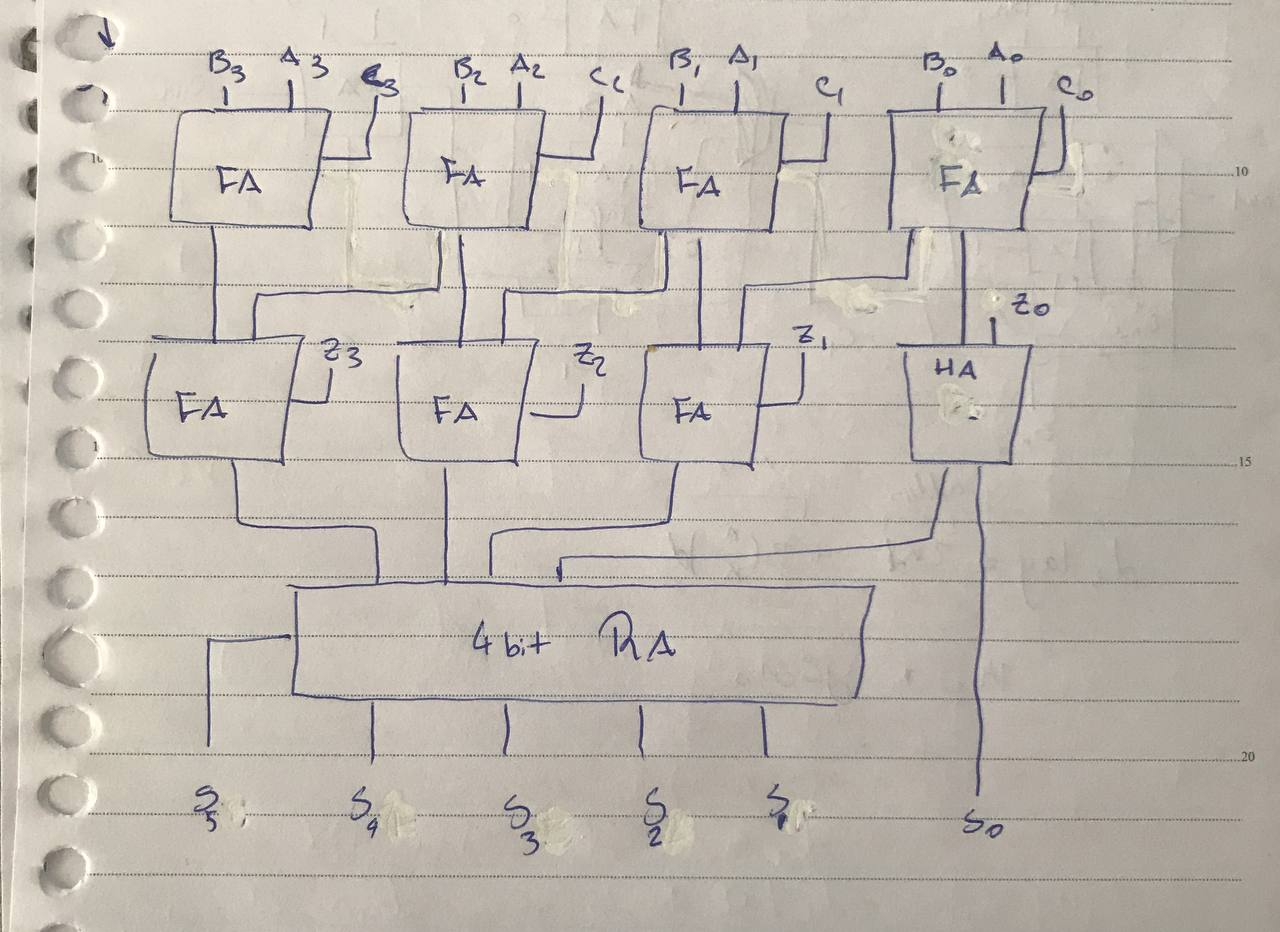 B3 A3 C3 B2 A2 C2 B1 A1 C1 B0 A0 C0
FA FA FA FA
10
Z3 Z2 Z1 Z0
FA FA FA HA
15
4 bit RA
20
S5 S4 S3 S2 S1 S0